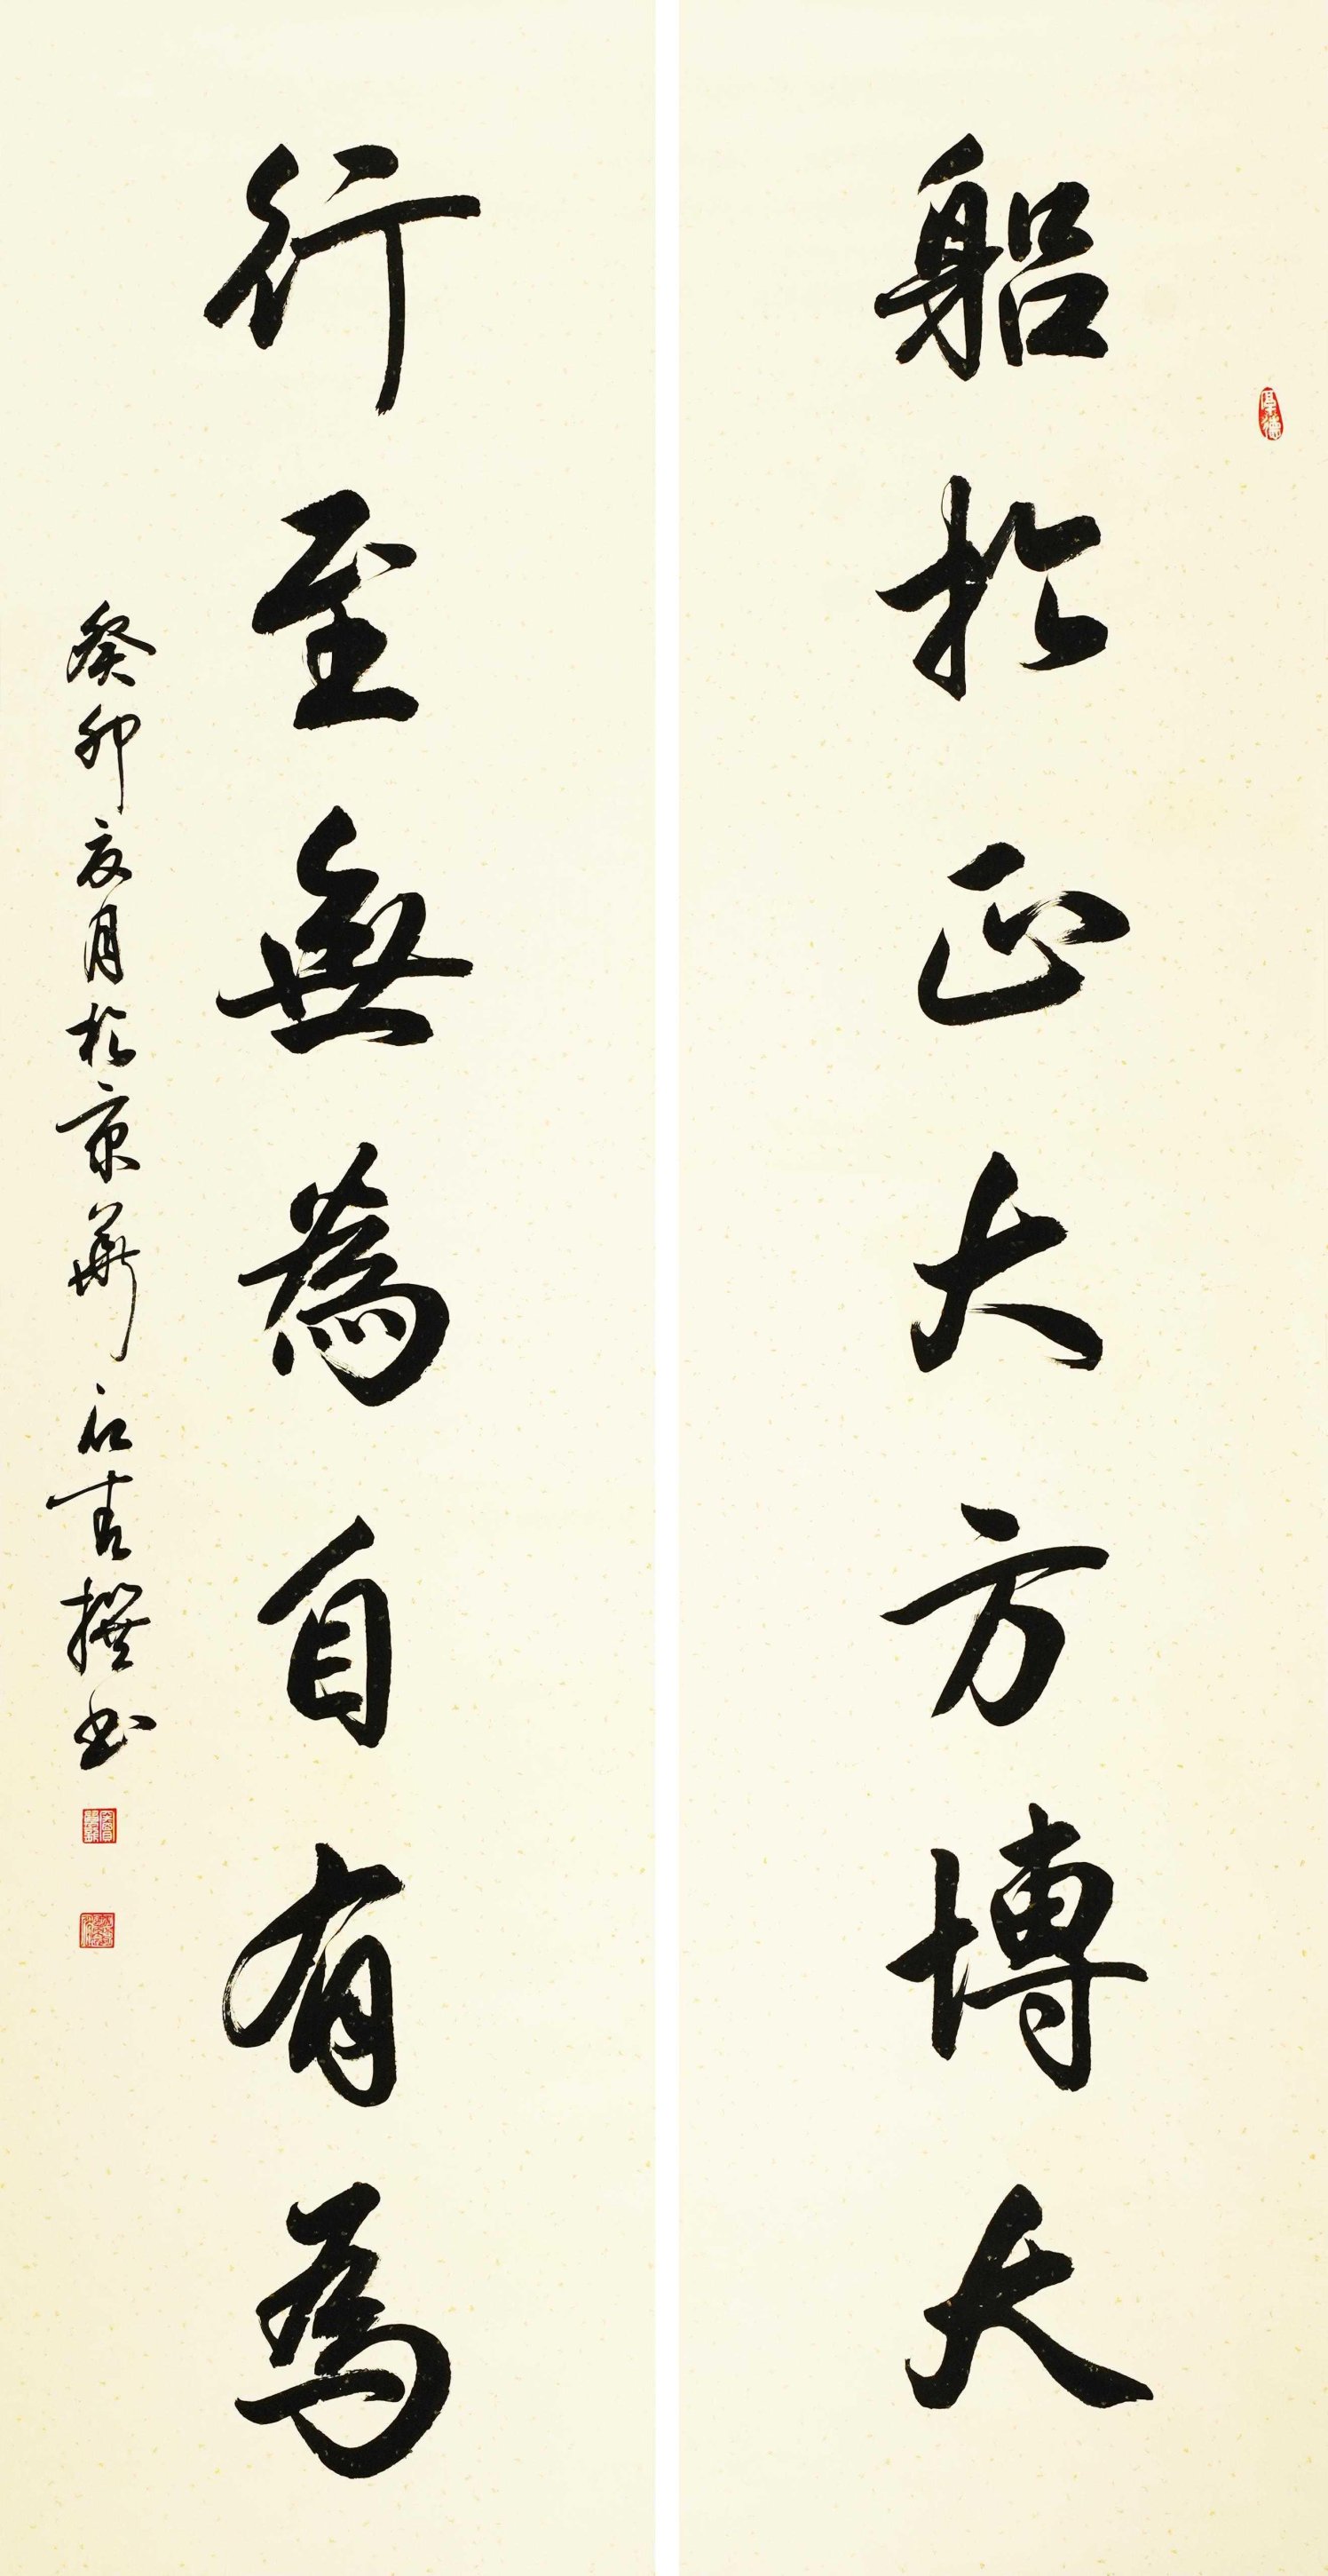 厚德
躳於正大方博大
行至無為自有為
癸卯夏月於京華 撰书